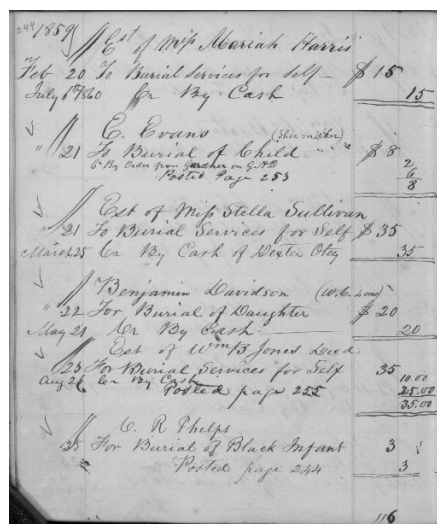 244 1859
Est of Miss Mariah Harris
Feb 20 To Burial Services for Self $15
July 6th 1860 Cr By Cash 15
E. Evans (Shoemaker)
" 21 To Burial of Child " " " $8
Cr By Order from Gardner on G.A.D 2
6
Posted Page 253 8
Est of Miss Stella Sullivan
" 21 To Burial Services for Self $35
March 25 Cr By Cash of Dexter Otey 35
Benjamin Davidson
" 22 For Burial of Daughter $20
May 21 Cr By Cash 20
Est of Wm B Jones Decd
" 23 For Burial Services for Self 35
Aug 26 Cr By Cash 10.00
25.00
Posted page 255 35.00
C. R Phelps
25 For Burial of Black Infant 3
Posted page 244 3
116